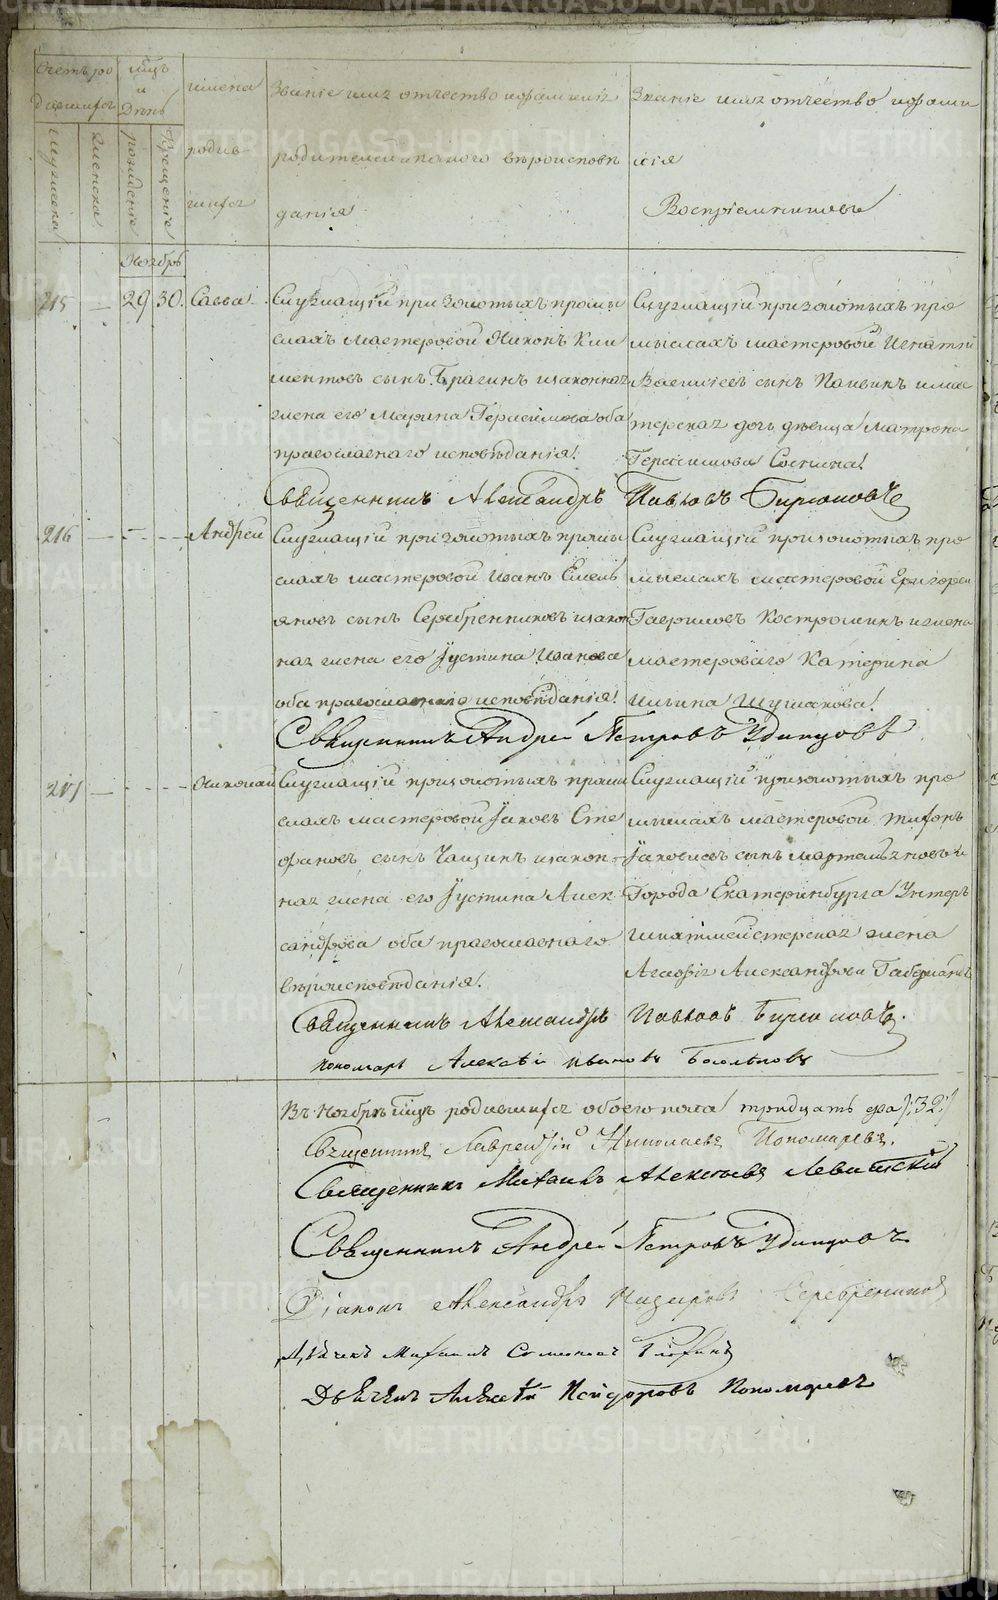 Счетъ ро
дившихся
мѣсцъ
и
День
имена
родив-
шихся
Званіе имя отчество и фамилія
родителей и какого вѣроисповѣ
данія
Званіе имя отчество и фами
лія
Воспріемниковъ
мужеска
Женска
рожденіе
Крещеніе
Ноябрь
215 — 29 30. Савва.
Служащій при золотыхъ промы
слахъ мастеровой Никонъ Кли
ментовъ сынъ Брагинъ и законная
жена его Марина Герасимова оба
православнаго исповѣданія!
Служащій при золотыхъ про
мыслахъ мастеровой Игнатій
Васильевъ сынъ и мас
терская дочь дѣвица Матрона
Герасимова
Священникъ Александръ Павловъ Бирюковъ
216 — - - - - Андрей
Служащій при золотыхъ промы
слахъ мастеровой Иванъ Емель
яновъ сынъ Серебренниковъ и закон
ная жена его Іустина Иванова
оба православнаго исповѣданія!
Служащій при золотыхъ про
мыслахъ мастеровой Григорей
Гавриловъ Костроминъ и жена
мастероваго Катерина
Ильина Шумакова!
Священникъ Андрей Петровъ Удинцовъ
217 — - - - - Николай
Служащій при золотыхъ промы
слахъ мастеровой Іаковъ Сте
фановъ сынъ Чащинъ и закон-
ная жена его Іустина Алек
сандрова оба православнаго
вѣроисповѣданія!
Служащій при золотыхъ про
мыслахъ мастеровой Тихонъ
Іаковлевъ сынъ Мартемьяновъ и
Города Екатеринбурга Унтеръ
шихтмейстерская жена
Агафія Александрова
Священникъ Александръ Павловъ Бирюковъ.
пономарь Алексѣй Ивановъ
Въ Ноябрѣ мѣсцѣ родившихся обоего пола тридцать два /:32:/
Священникъ Лаврентій Николаевъ Пономаревъ.
Священникъ Михаилъ Алексѣевъ Левитскій
Священникъ Андрей Петровъ Удинцовъ
Діаконъ Александръ Серебренников
Дьячекъ Михаилъ Семеновъ
Дьячекъ Алексѣй Исидоровъ Пономаревъ
METRIKI.GASO-URAL.RU